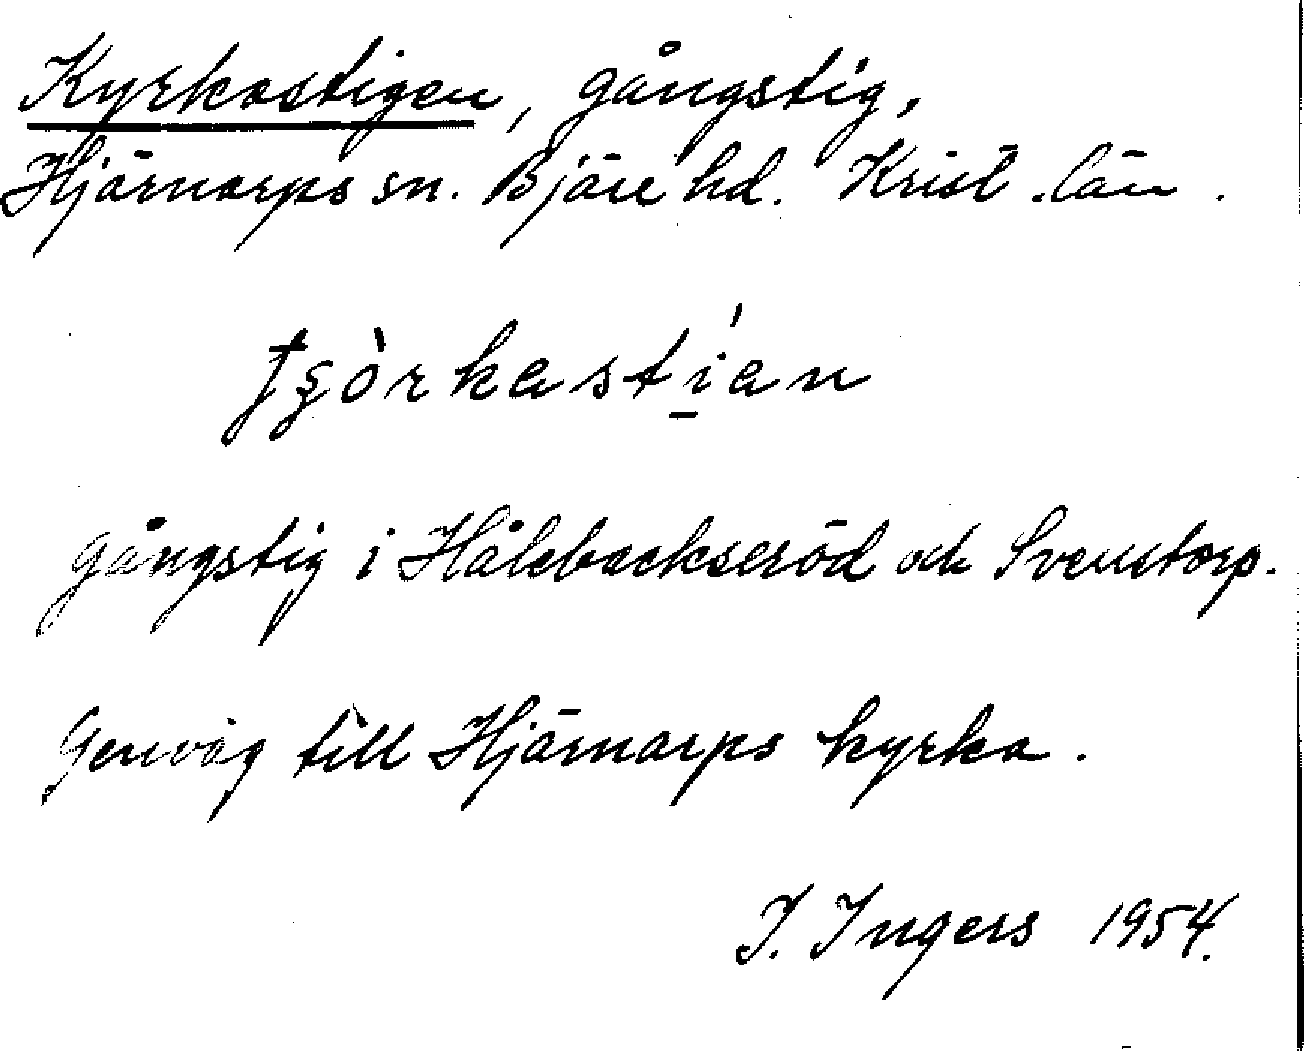 Kyrkastigen, gångstig,
Hjärnarps sn. Bjäre hd. Krist. län.
gångstig i Hålebackseröd och Svenstorp.
Genväg till Hjärnarps kyrka.
I. Ingers 1954.